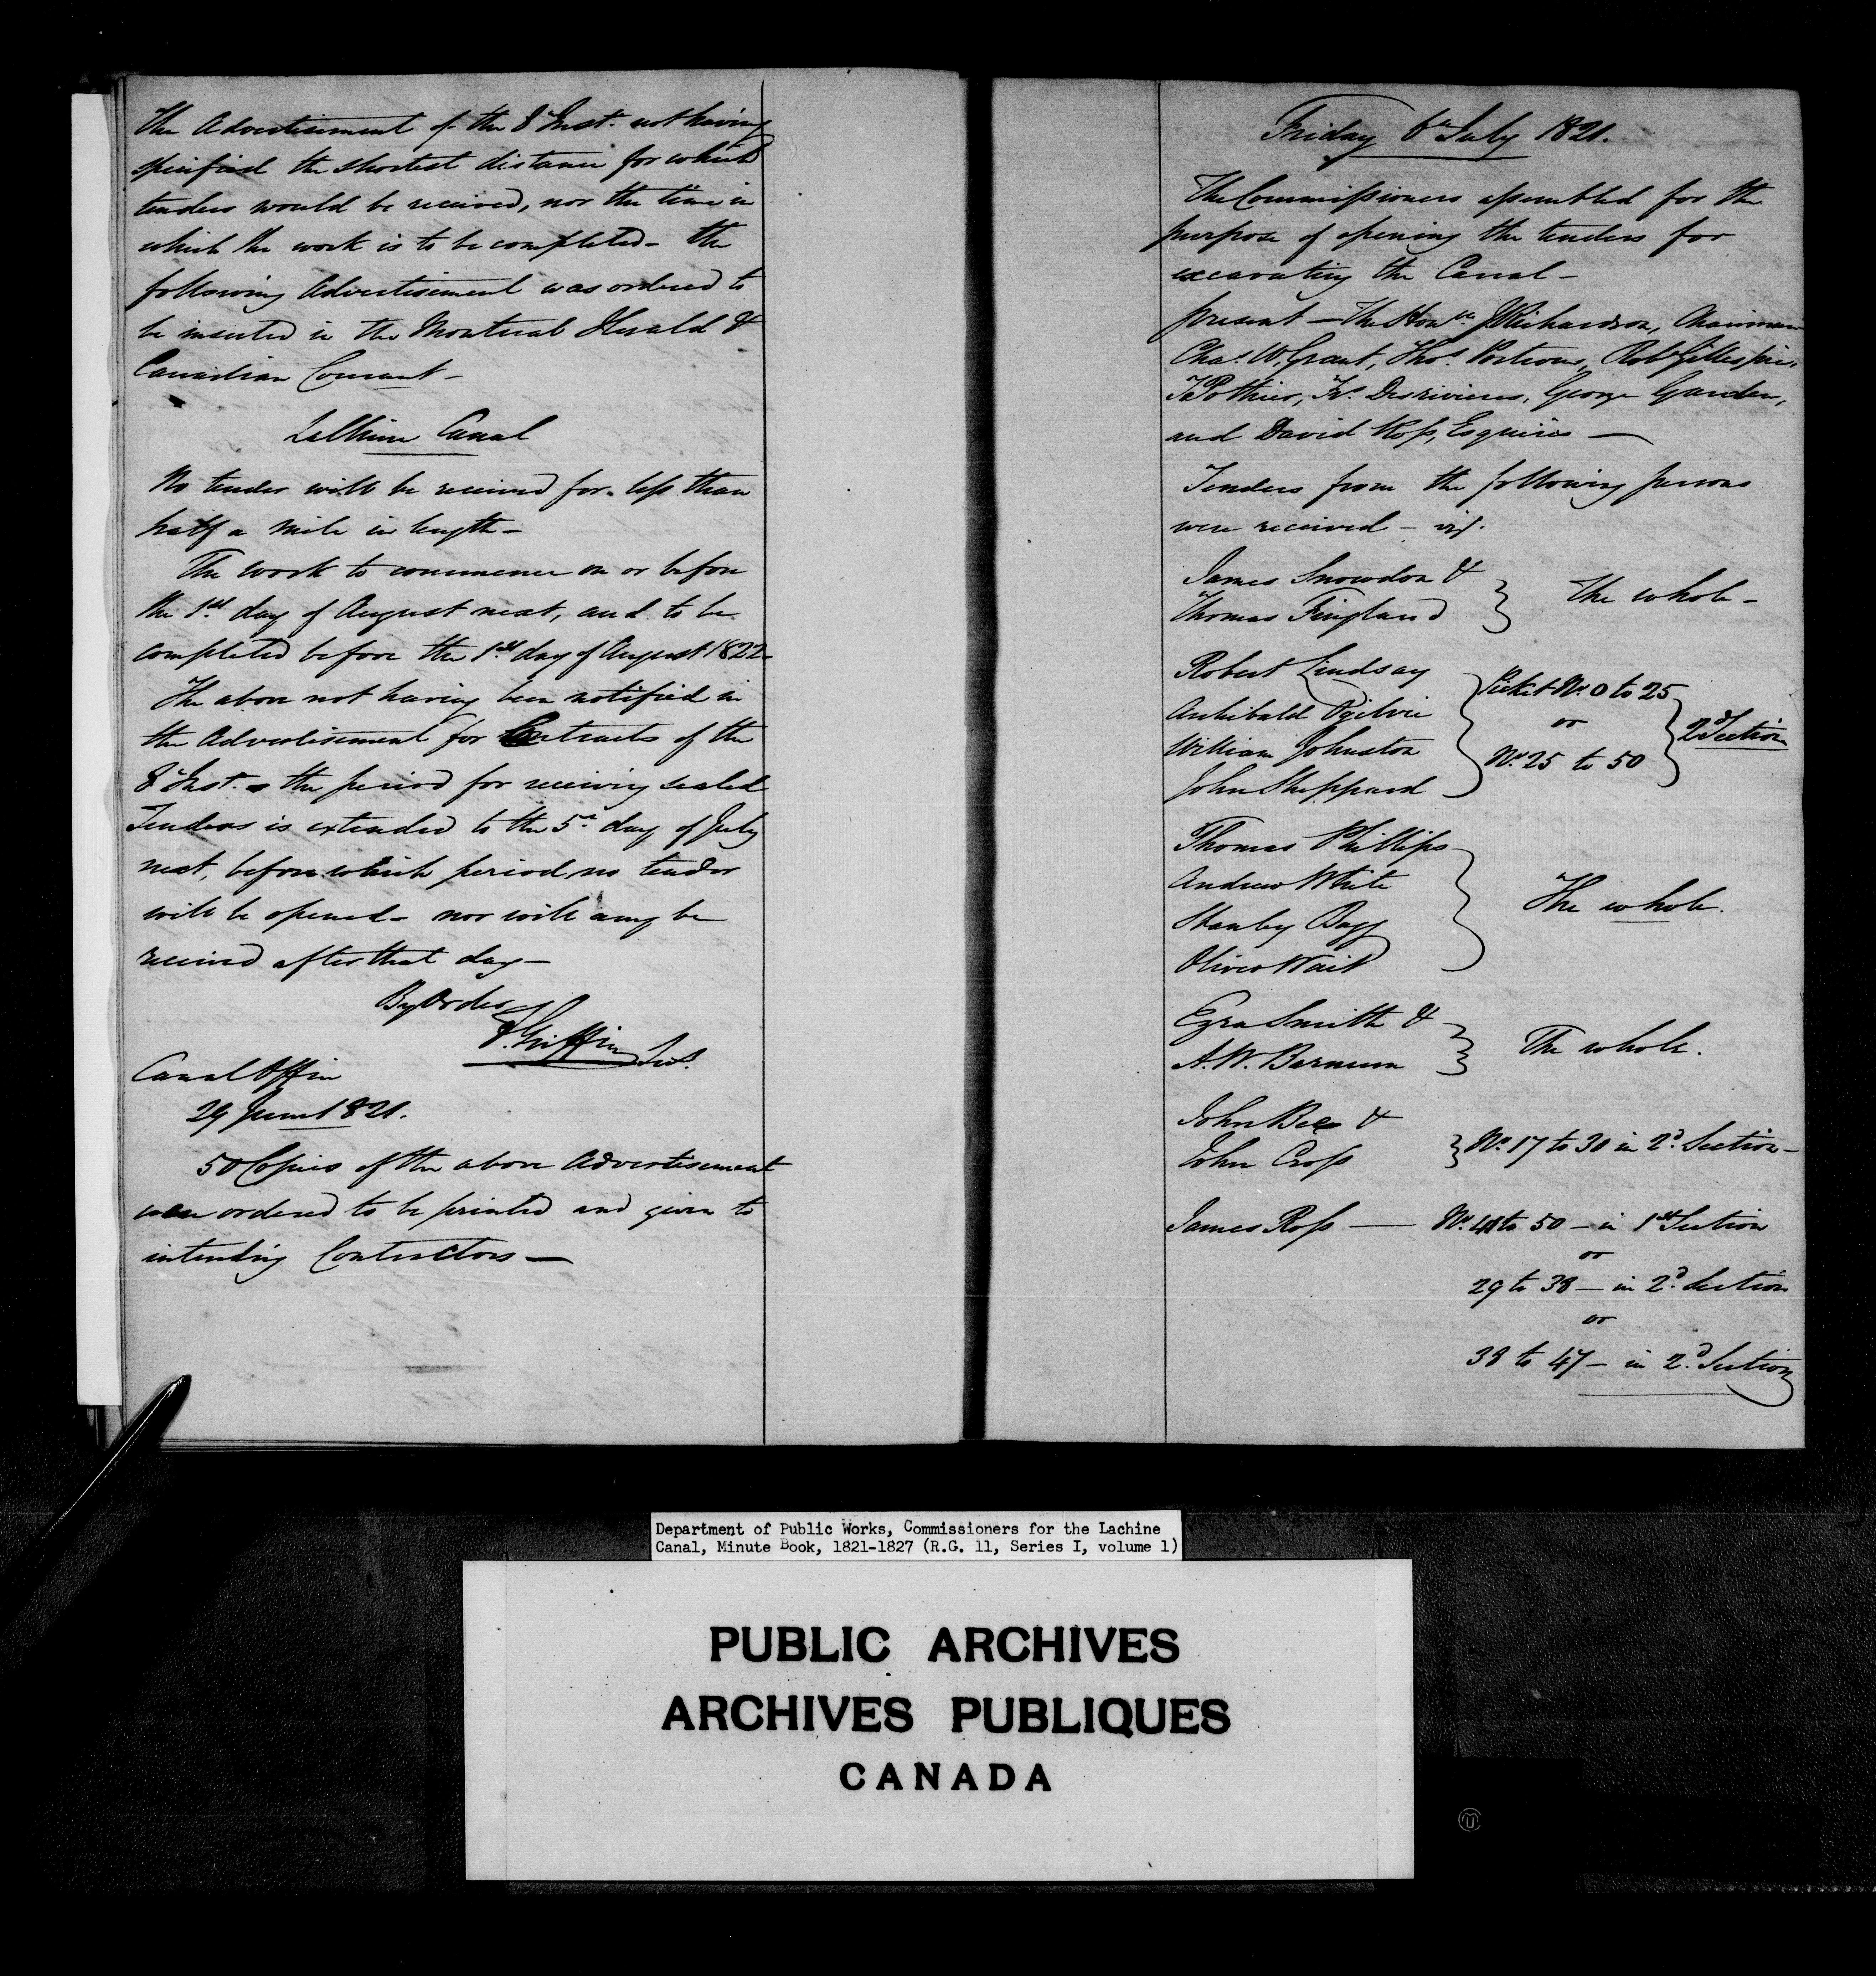 The Advertisement of the 8 Inst. not having
specified the shortest distance for which
tenders would be received, nor the time in
which the work is to be completed - the
following Advertisement was ordered to
be inserted in the Montreal Herald &
Canadian Courant -
LaChine Canal
No tender will be received for less than
half a mile in length -
The work to commence on or before
the 1st day of August next, and to be
completed before the 1st day of August 1822 -
The above not having been notified in
the Advertisement for Contracts of the
8 Inst. the period for receiving sealed
Tenders is extended to the 5th day of July
next, before which period no tender
will be opened - nor will any be
received after that day -
By Order
F. Griffin Secy.
Canal Office
29 June 1821.
50 Copies of the above Advertisement
were ordered to be printed and given to
intending Contractors -
Friday 6th July 1821.
The Commissioners assembled for the
purpose of opening the tenders for
excavating the Canal -
present - The Honble. J Richardson, Chairman
Chas. W. Grant, Thos. Porteous, Robt Gillespie,
T Pothier, Frs. Desrivieres, George Garden,
and David Ross, Esquires -
Tenders from the following persons
were received - viz.
James Snowdon &
Thomas Fingland } The whole -
Robert Lindsay
Archibald Ogilvie
William Johnston
John Sheppard
Picket No. 0 to 25
or
No. 25 to 50
2d Section
Thomas Phillips
Andrew White
Stanley Bagg
Oliver Wait
The whole.
Ezra Smith &
A. W. Barnum } The whole.
John Bes &
John Cross } No. 17 to 30 in 2d. Section -
James Ross - No. 41 to 50 - in 1st Section
or
29 to 38 - in 2d. Section
or
38 to 47 - in 2d. Section
Department of Public Works, Commissioners for the Lachine
Canal, Minute Book, 1821-1827 (R.G. 11, Series I, volume 1)
PUBLIC ARCHIVES
ARCHIVES PUBLIQUES
CANADA